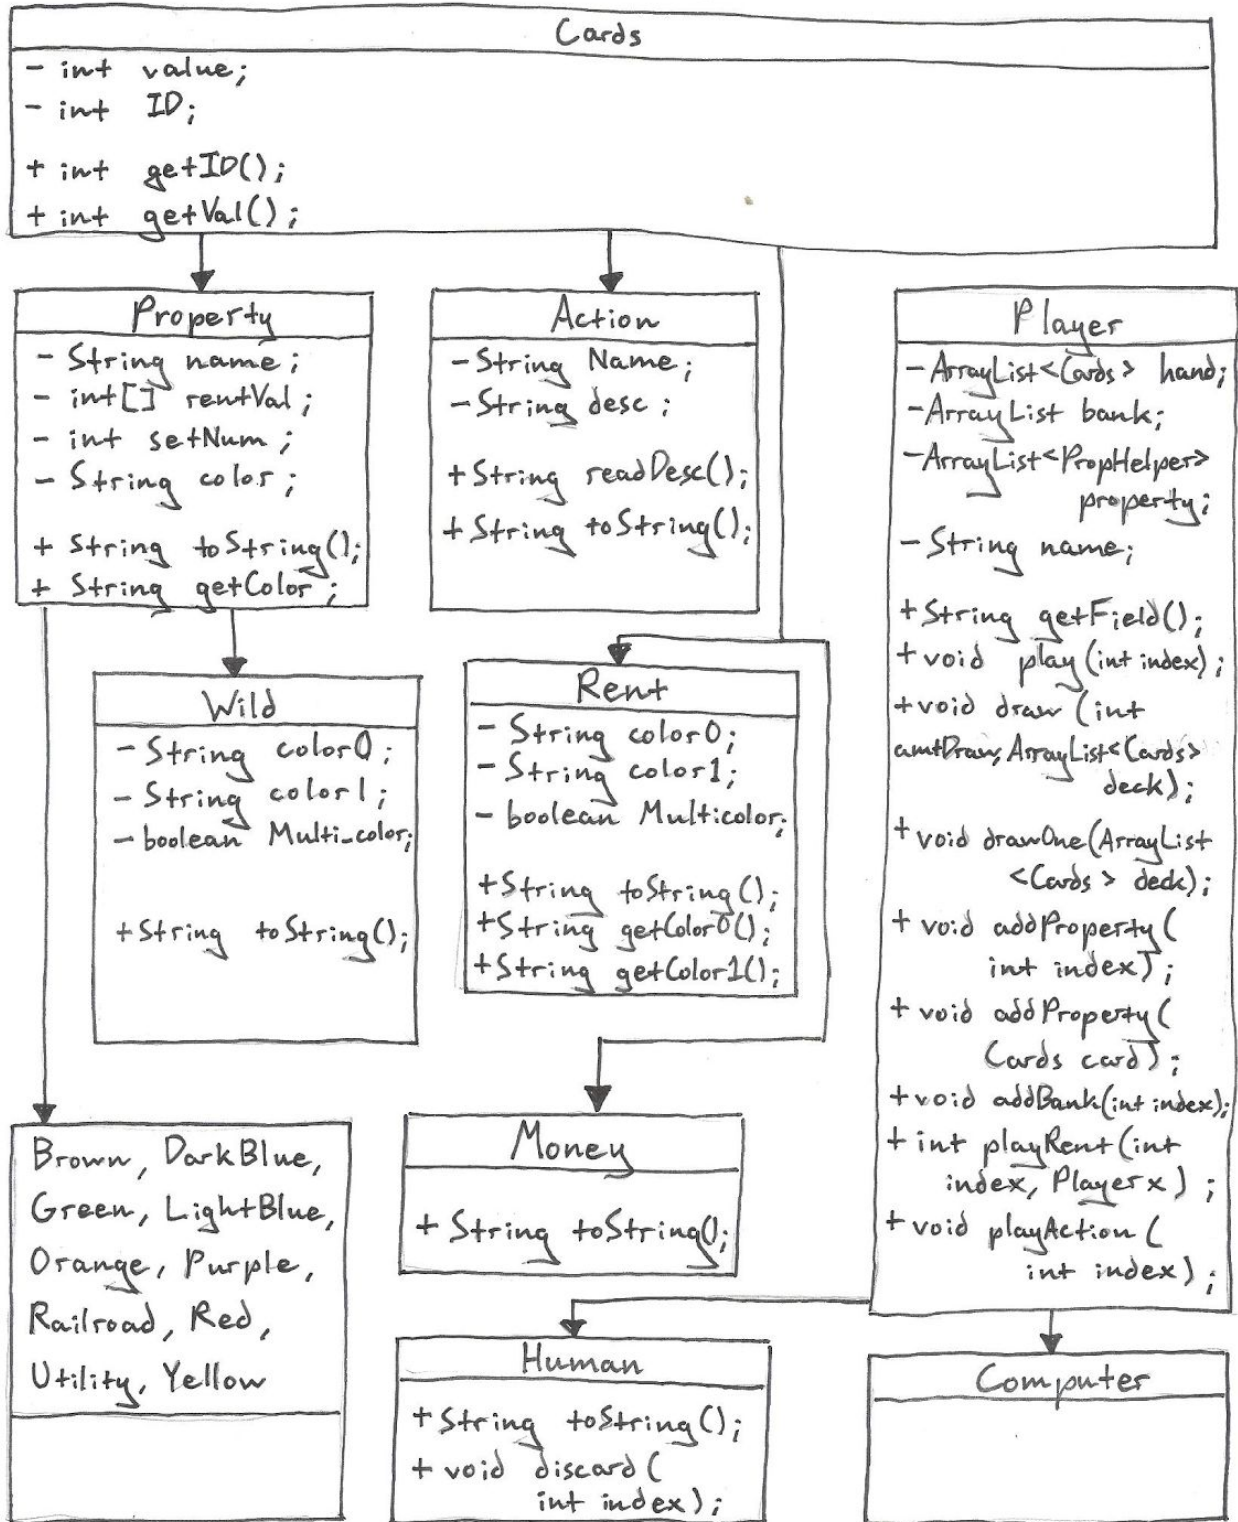 Cards
- int value;
- int ID;
+ int getID();
+ int getVal();
Property
- String name;
- int[] rentVal;
- int setNum;
- String color;
+ String toString();
+ String getColor;
Action
- String Name;
- String desc;
+ String readDesc();
+ String toString();
Player
- ArrayList<Cards> hand;
- ArrayList bank;
- ArrayList<PropHelper>
property;
- String name;
+ String getField();
+ void play(int index);
+ void draw (int
amtDraw, ArrayList<Cards>
deck);
+ void drawOne(ArrayList
<Cards> deck);
+ void addProperty(
int index);
+ void addProperty(
Cards card);
+ void addBank(int index);
+ int playRent(int
index, Player x);
+ void playAction(
int index);
Wild
- String color0;
- String color1;
- boolean Multi_color;
+ String toString();
Rent
- String color0;
- String color1;
- boolean Multicolor;
+ String toString();
+ String getColor0();
+ String getColor1();
Brown, DarkBlue,
Green, LightBlue,
Orange, Purple,
Railroad, Red,
Utility, Yellow
Money
+ String toString();
Human
+ String toString();
+ void discard(
int index);
Computer